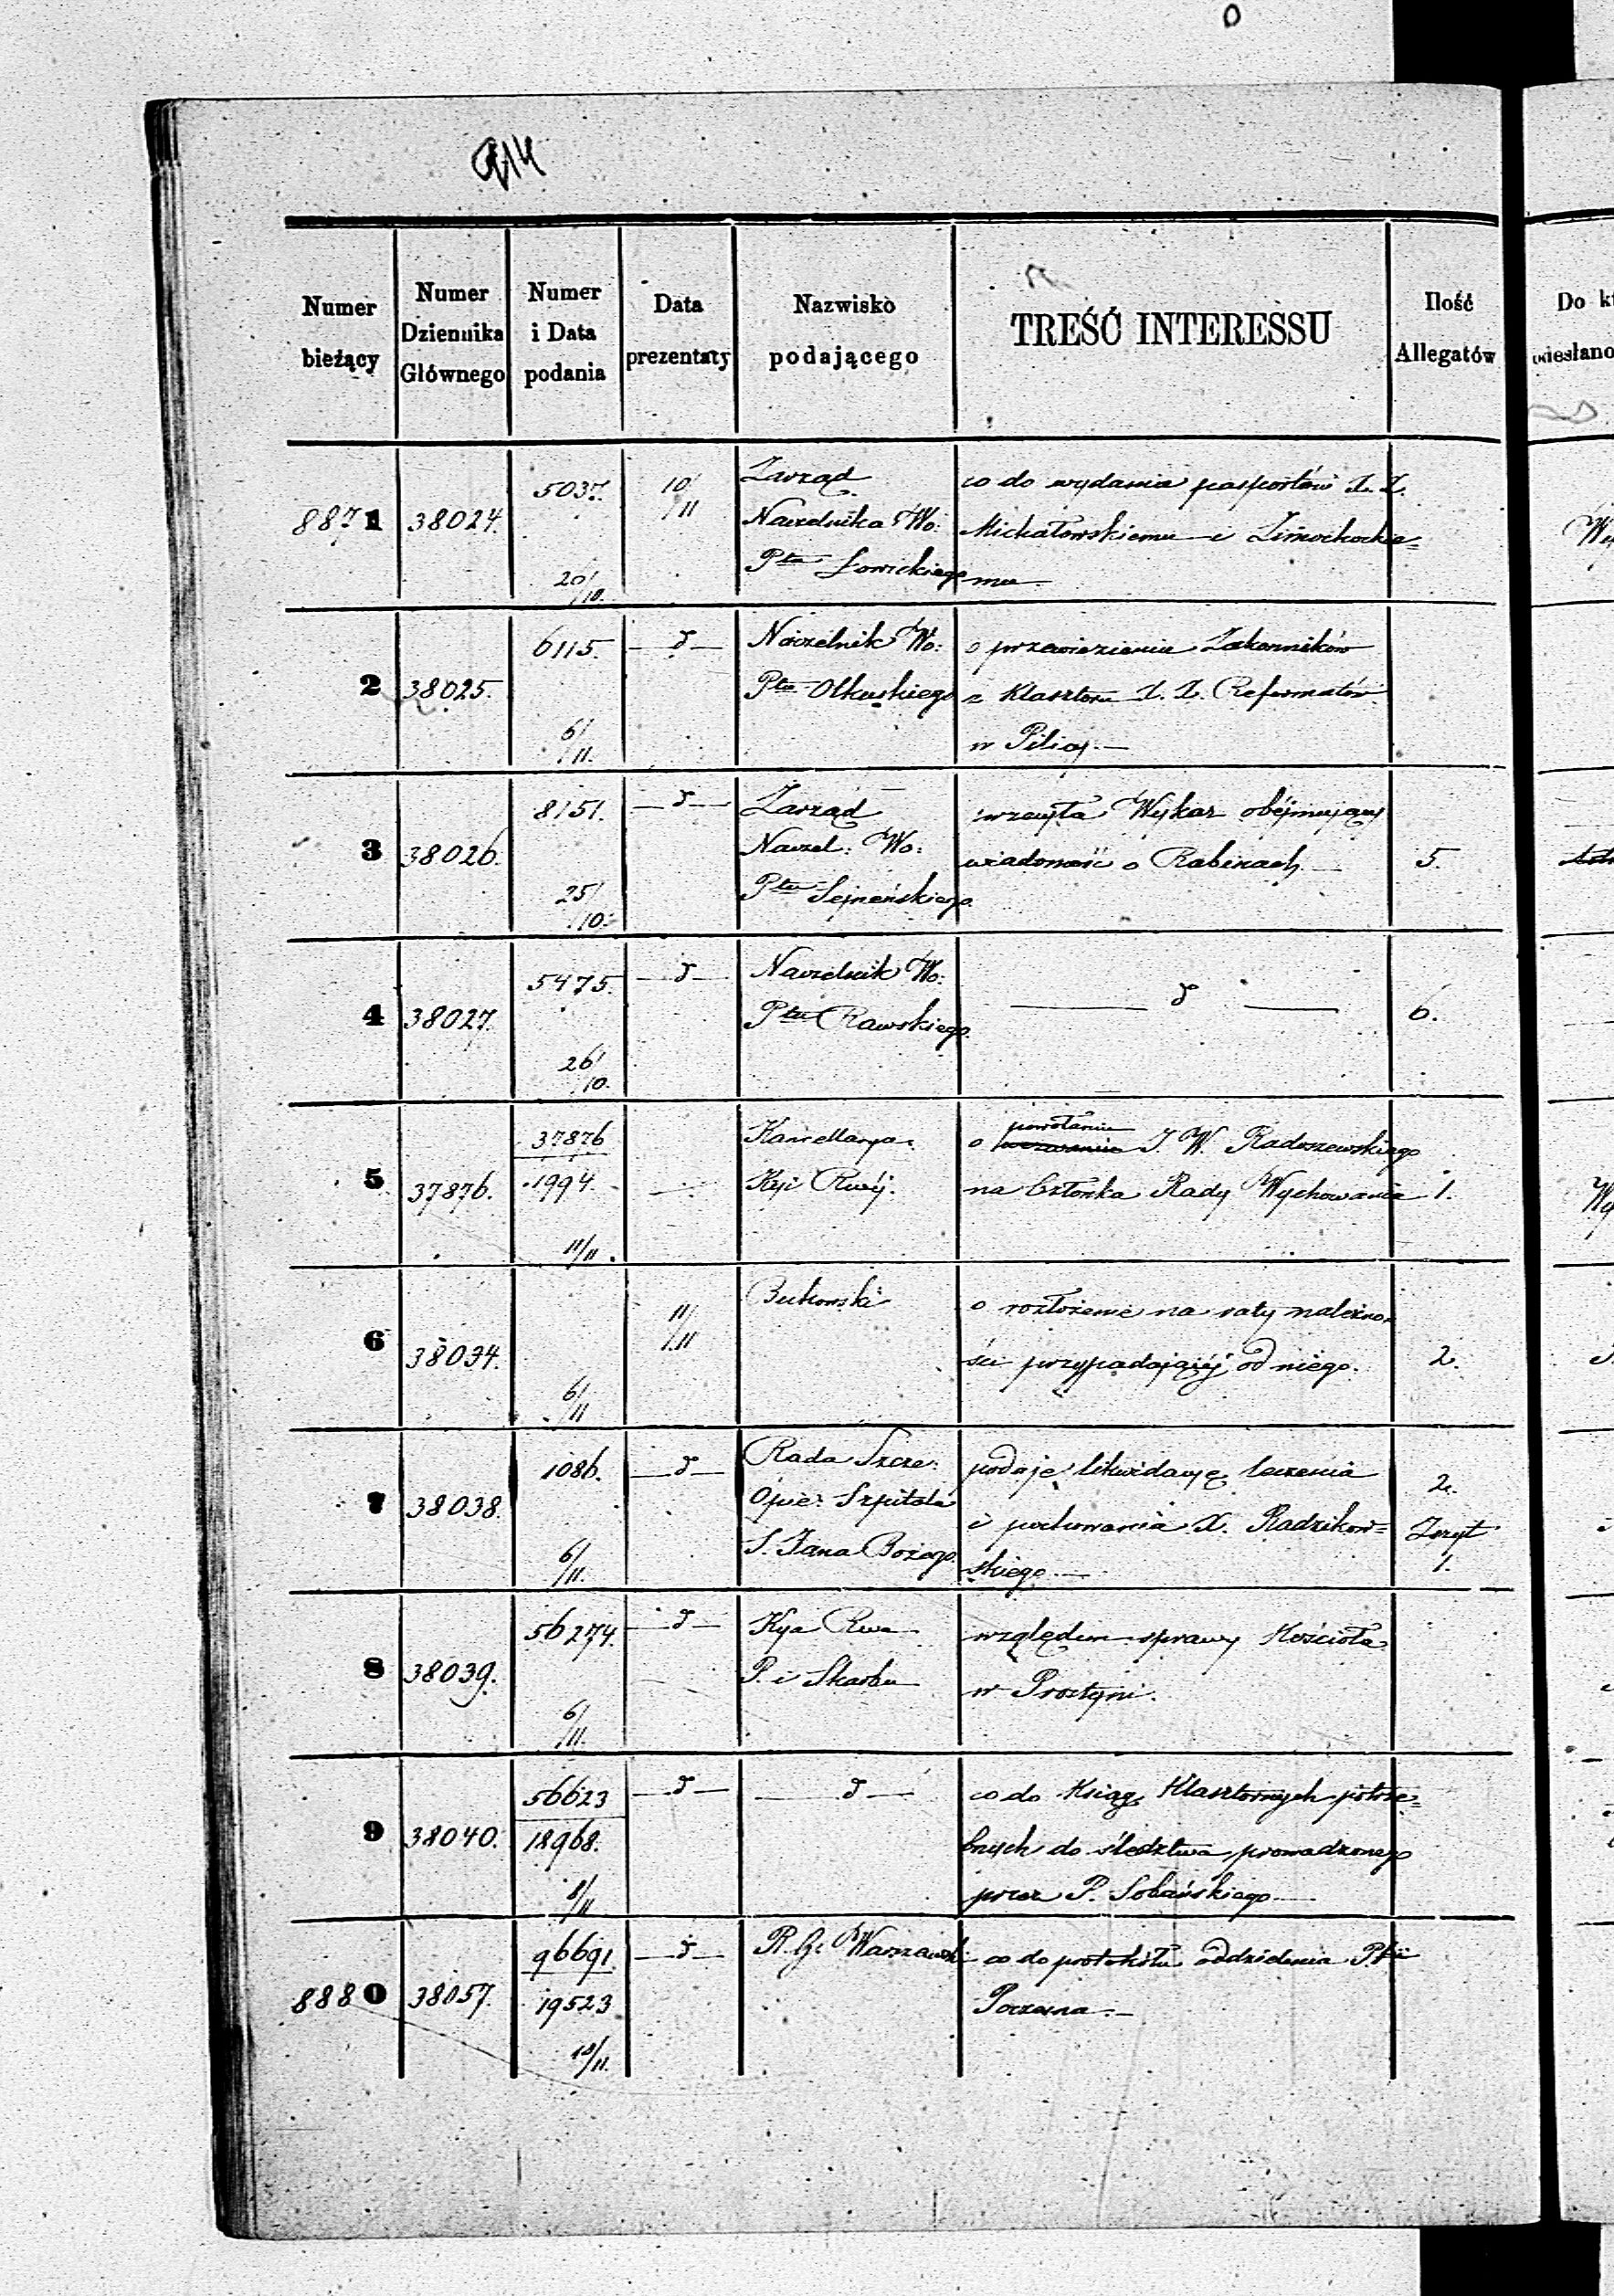 914
Numer
bieżący
Numer
Dziennika
Głównego
Numer
i Data
podania
Data
prezentaty
Nazwisko
podającego
TREŚĆ INTERESSU
Ilość
Allegatów
8871 38024. 5037. 20/10. 10/11
Zarząd
Naczelnika Wo:
Ptu Łowickiego
co do wydania pasportów X. X.
Michałowskiemu i
mu
2 38025. 6115. 6/11. — d —
Naczelnik Wo:
Ptu Olkuskiego
o przewiezieniu Zakonników
z Klasztoru X. X. Reformatów
w Pilicy. —
3 38026. 8151. 25/10. — d —
Zarząd
Naczel: Wo:
Ptu Sejneńskiego
wrzuyła Wykaz obejmujący
wiadomość o Rabinach. —
5.
4 38027. 5475. 26/10. — d —
Naczelnik Wo:
Ptu Rawskiego.
— d —
6.
5 37876. 37876
1994. 11/11.
Kancellarya
Kyi Rwéj.
o powołaniu J. W. Radoszewskiego
na Członka Rady Wychowania
1.
6 38034. 6/11 11/11
Butkowski
o rozłożenie na raty należno-
ści przypadającéj od niego.
2.
7 38038. 1086. 6/11. — d —
Rada Szcze:
Opie: Szpitala
S. Jana Bożego.
podaje likwidacyę leczenia
i pochowania X. Radzikow=
skiego. —
2.
Zeszyt
1.
8 38039. 56274. 6/11. — d —
Kya Rwa
P. i Skarbu
względem sprawy Kościoła
w Prostyni.
9 38040. 56623
18968. 8/11 — d —
— d —
co do Ksiąg Klasztornych potrze=
bnych do śledztwa prowadzonego
przez P. Sobańskiego —
8880 38057. 96691
19523 10/11. — d —
R. G. Warszawski
co do protokółu oddzielenia
Poczesna. —
Do